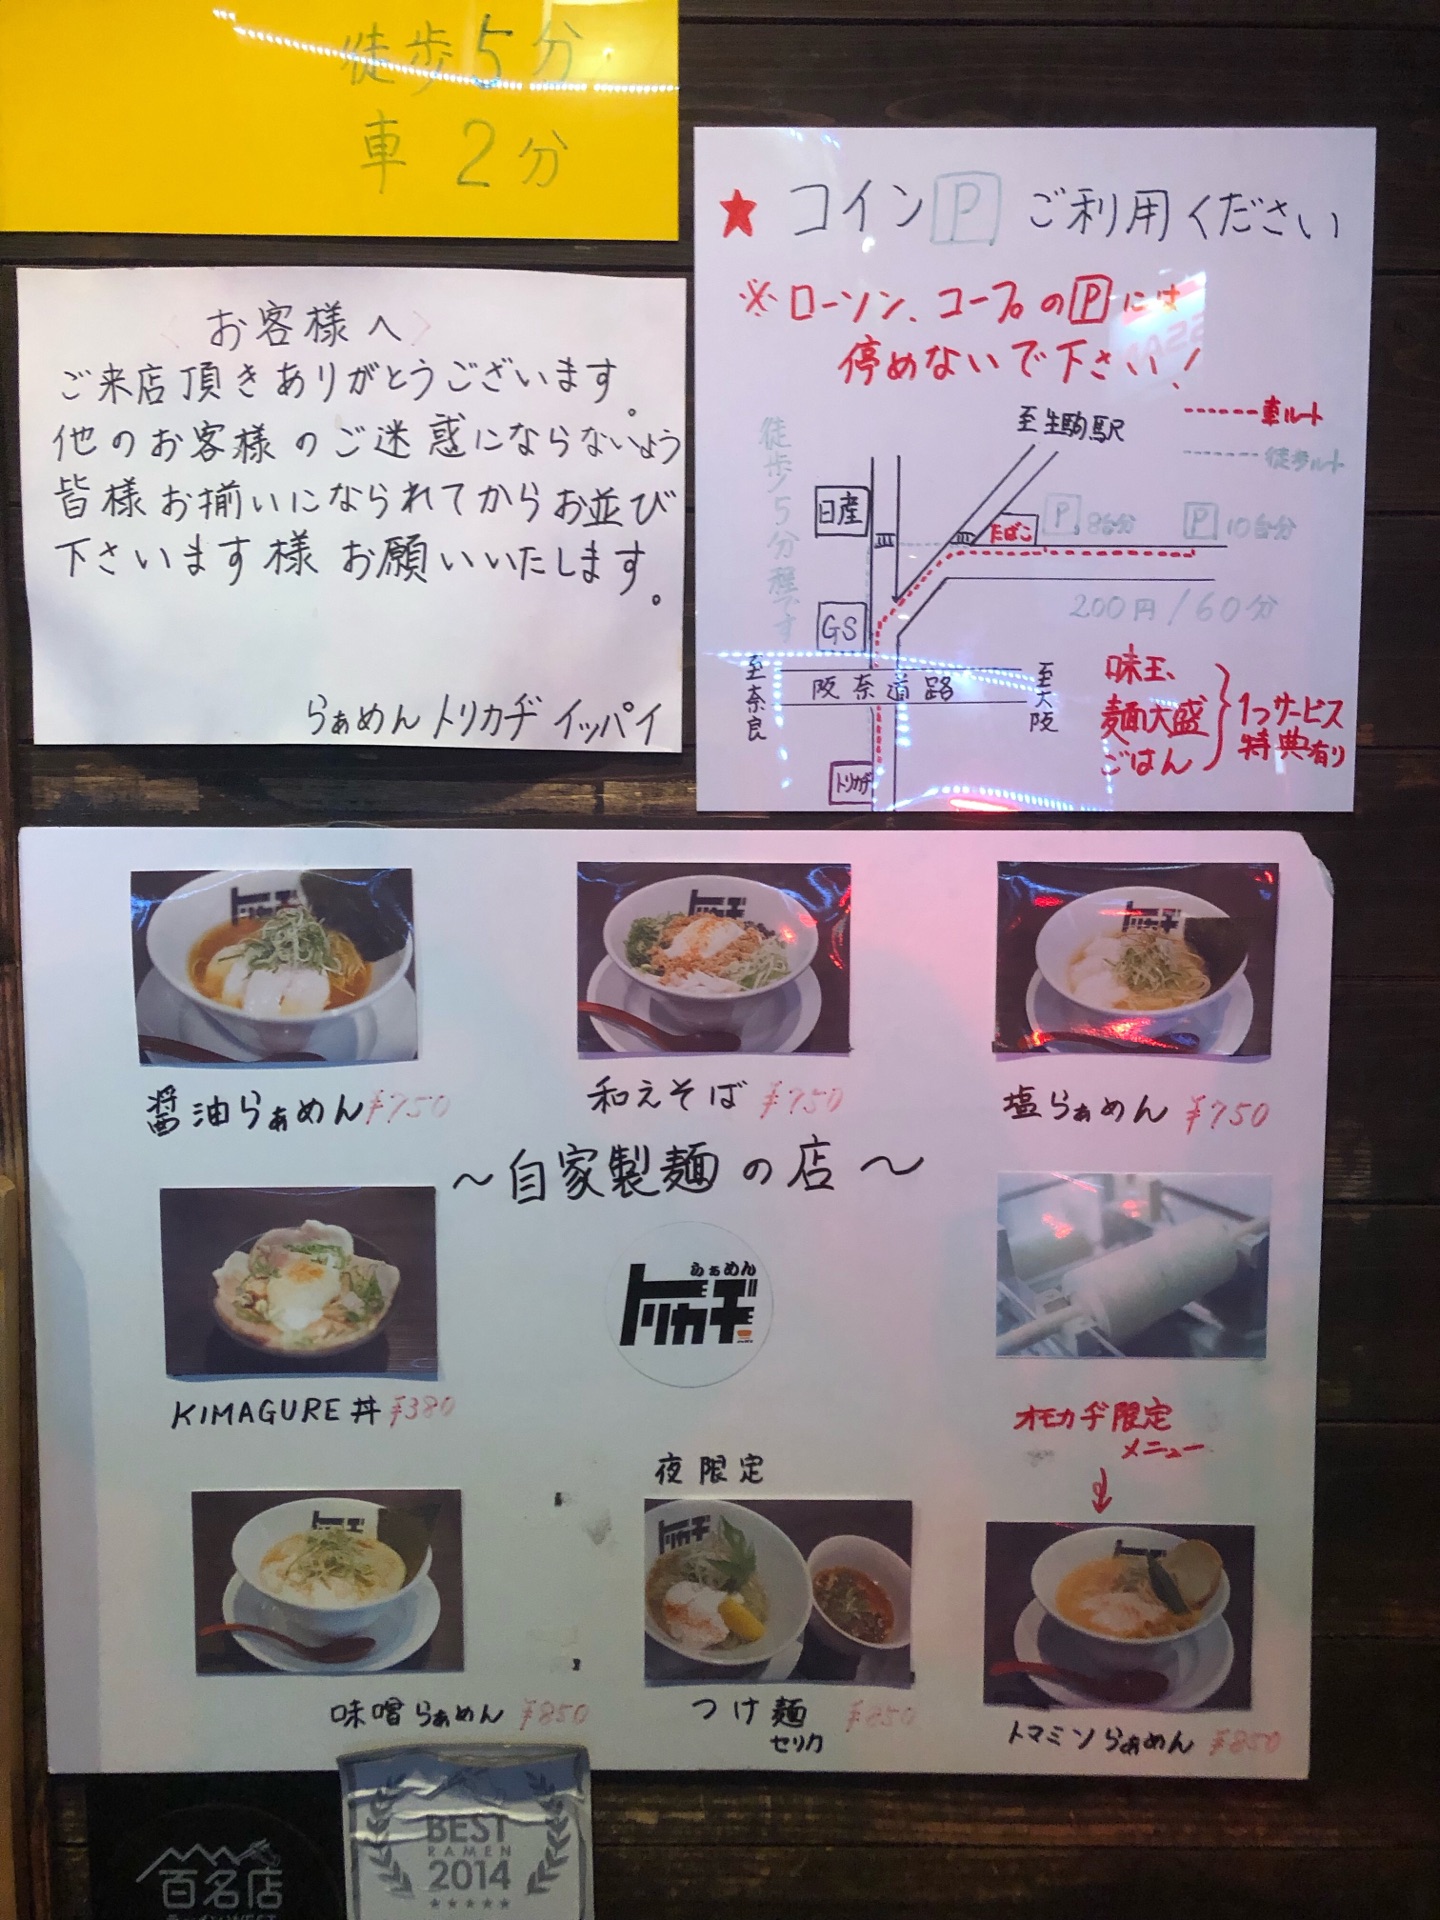 徒歩5分
車 2分
お客様へ
ご来店頂きありがとうございます。
他のお客様のご迷惑にならないよう
皆様お揃いになられてからお並び
下さいます様お願いいたします。
らぁめんトリカヂイッパイ
★ コイン P ご利用ください
※ローソン、コープの P には
停めないで下さい!
車ルート
徒歩ルート
至生駒駅
徒歩/5分程です
日産
たばこ
P 8台分
P 10台分
200円/60分
GS
至奈良
阪奈道路
至大阪
トリカヂ
味玉、
麺大盛
ごはん
1つサービス
特典有り
トリカヂ
トリカヂ
トリカヂ
醤油らぁめん ¥750
和えそば ¥750
塩らぁめん ¥750
〜自家製麺の店〜
らぁめん
トリカヂ
KIMAGURE丼 ¥380
オモカヂ限定
メニュー
↓
夜限定
トリカヂ
トリカヂ
トリカヂ
味噌らぁめん ¥850
つけ麺 ¥850
セリカ
トマミソらぁめん ¥850
百名店
ラーメン WEST
BEST
RAMEN
2014
★★★★★